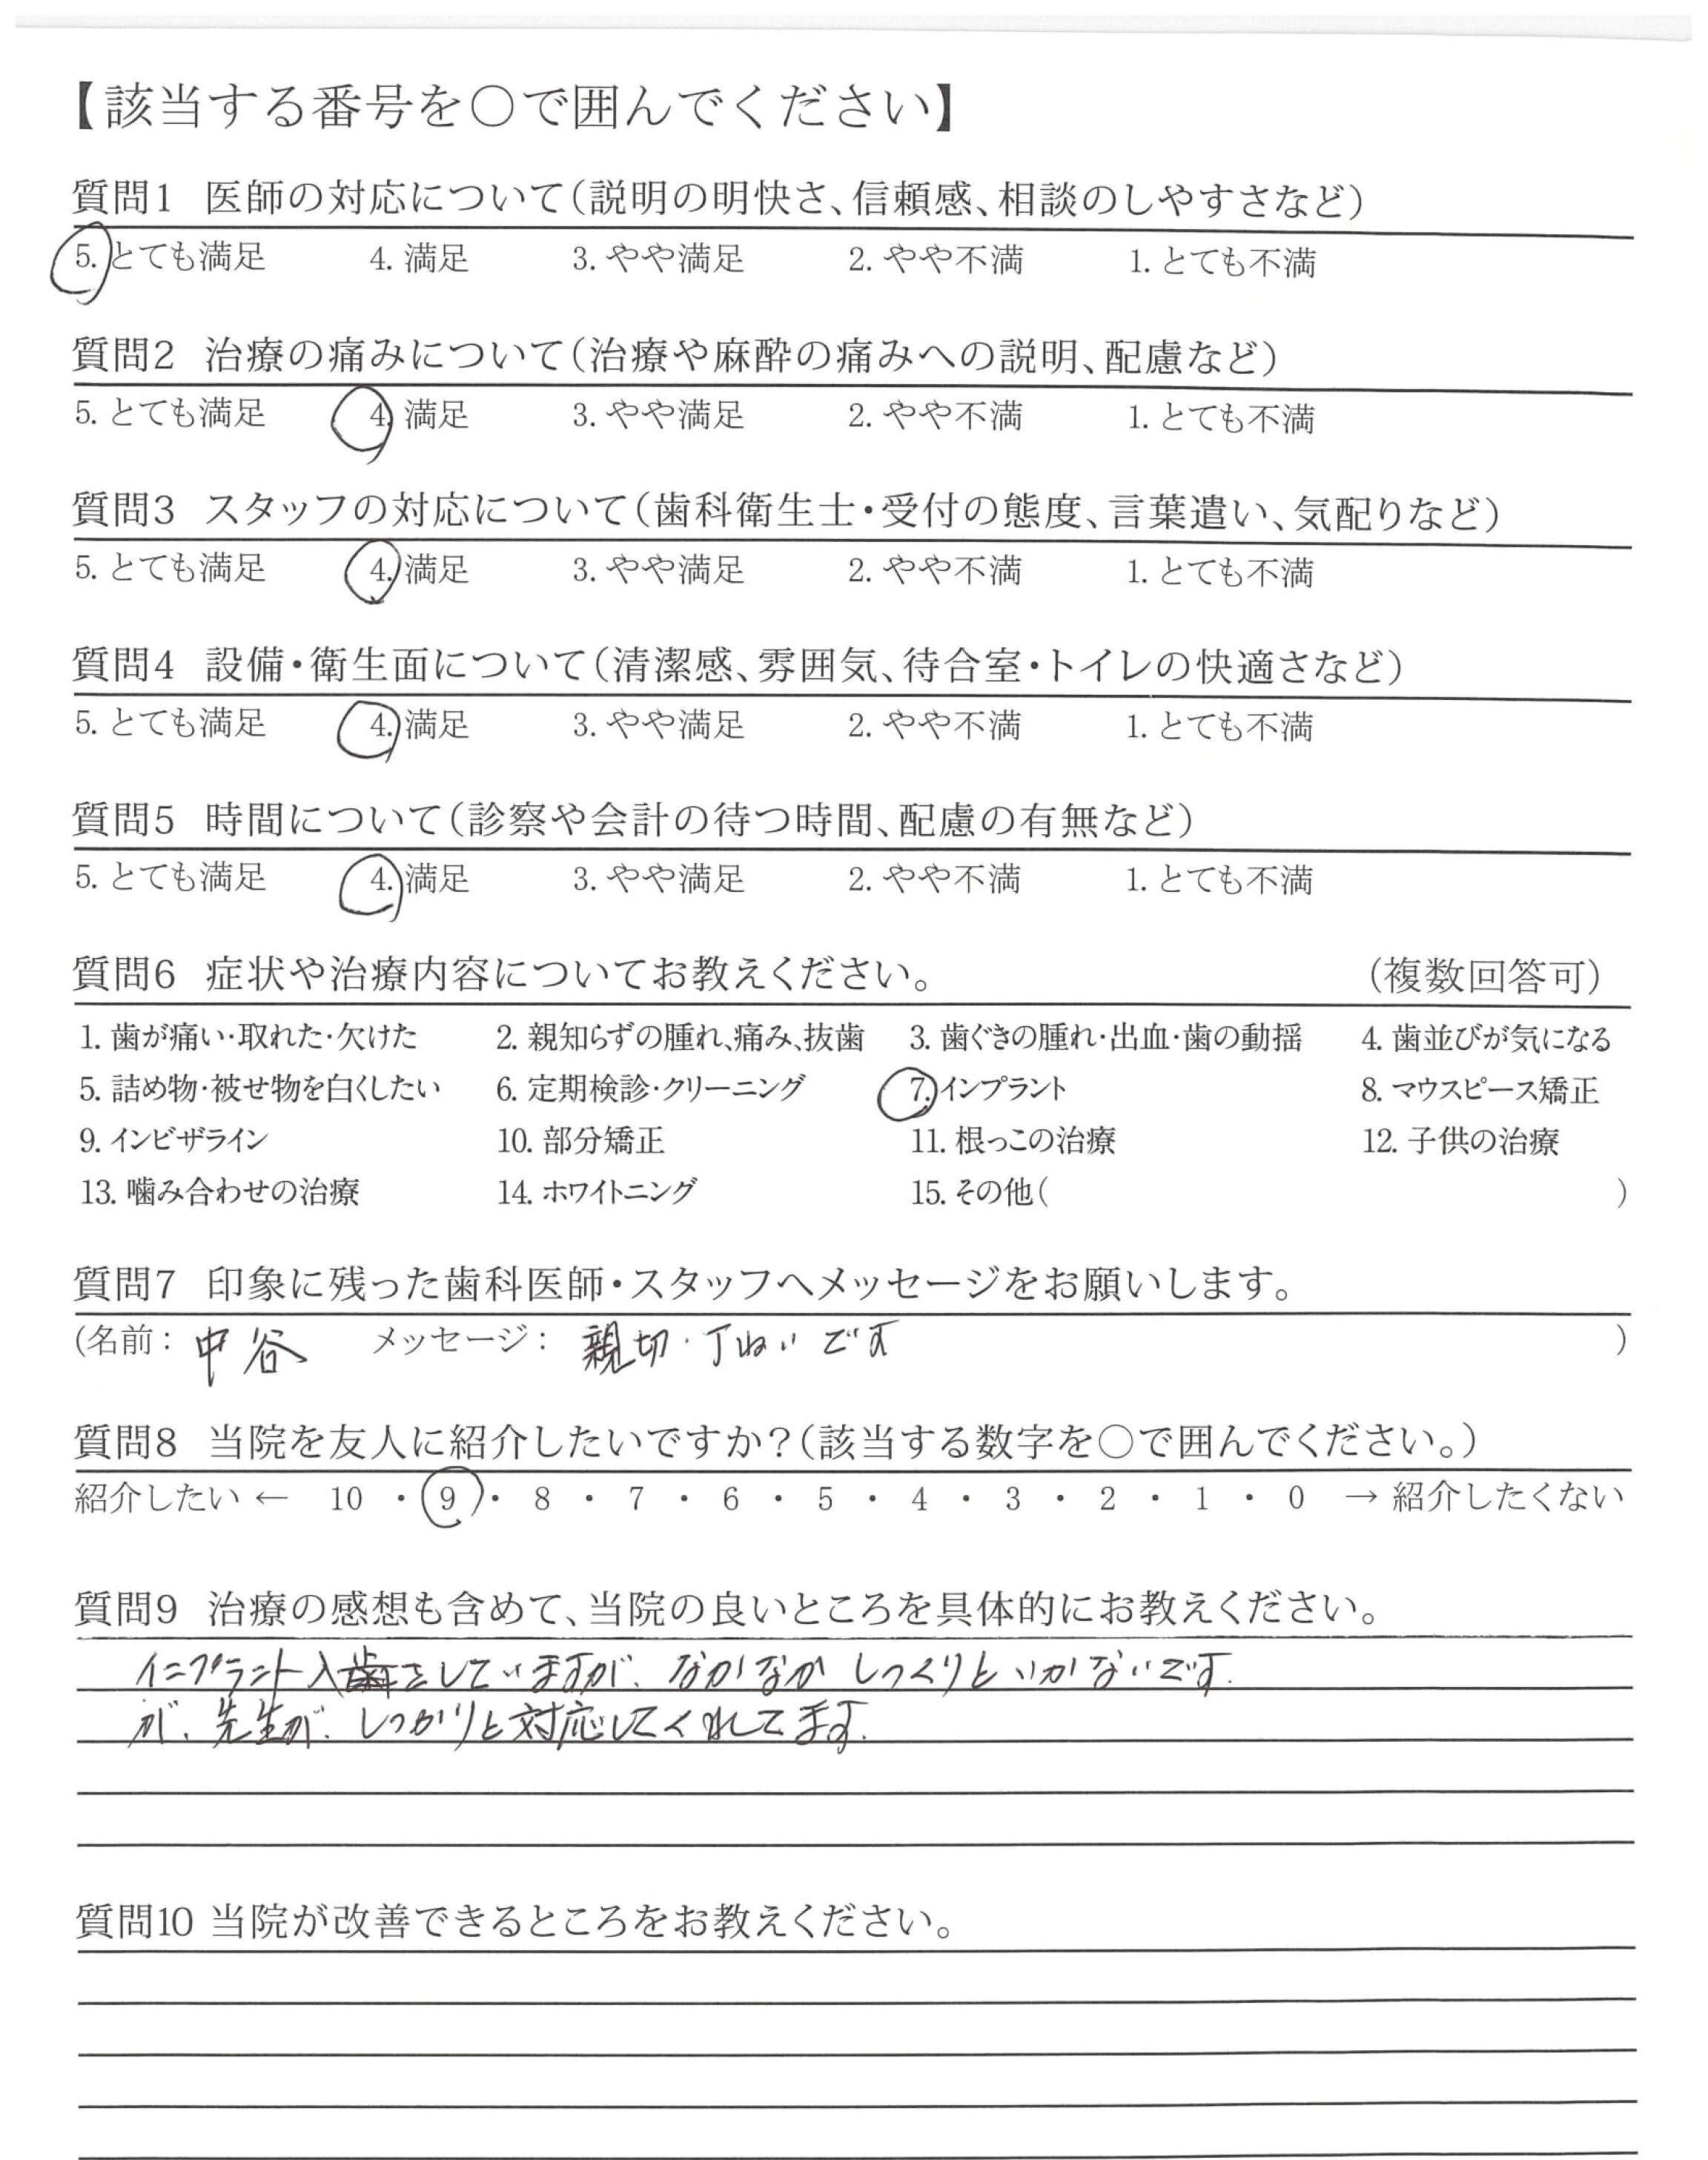 【該当する番号を○で囲んでください】
質問1 医師の対応について（説明の明快さ、信頼感、相談のしやすさなど）
5. とても満足 4. 満足 3. やや満足 2. やや不満 1. とても不満
質問2 治療の痛みについて（治療や麻酔の痛みへの説明、配慮など）
5. とても満足 4. 満足 3. やや満足 2. やや不満 1. とても不満
質問3 スタッフの対応について（歯科衛生士・受付の態度、言葉遣い、気配りなど）
5. とても満足 4. 満足 3. やや満足 2. やや不満 1. とても不満
質問4 設備・衛生面について（清潔感、雰囲気、待合室・トイレの快適さなど）
5. とても満足 4. 満足 3. やや満足 2. やや不満 1. とても不満
質問5 時間について（診察や会計の待つ時間、配慮の有無など）
5. とても満足 4. 満足 3. やや満足 2. やや不満 1. とても不満
質問6 症状や治療内容についてお教えください。 （複数回答可）
1. 歯が痛い・取れた・欠けた 2. 親知らずの腫れ、痛み、抜歯 3. 歯ぐきの腫れ・出血・歯の動揺 4. 歯並びが気になる
5. 詰め物・被せ物を白くしたい 6. 定期検診・クリーニング 7. インプラント 8. マウスピース矯正
9. インビザライン 10. 部分矯正 11. 根っこの治療 12. 子供の治療
13. 噛み合わせの治療 14. ホワイトニング 15. その他（ ）
質問7 印象に残った歯科医師・スタッフへメッセージをお願いします。
（名前： 中谷 メッセージ： 親切・丁ねいです ）
質問8 当院を友人に紹介したいですか？（該当する数字を○で囲んでください。）
紹介したい ← 10 ・ 9 ・ 8 ・ 7 ・ 6 ・ 5 ・ 4 ・ 3 ・ 2 ・ 1 ・ 0 → 紹介したくない
質問9 治療の感想も含めて、当院の良いところを具体的にお教えください。
インプラント入歯をしていますが、なかなかしっくりといかないです.
が、先生が、しっかりと対応してくれてます.
質問10 当院が改善できるところをお教えください。